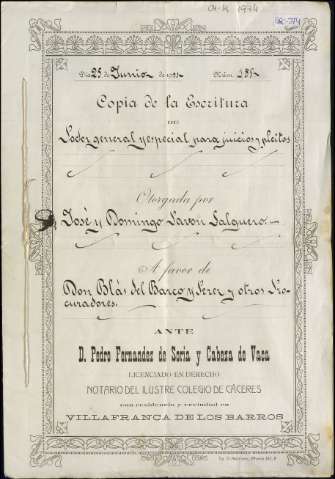 Día 25 de Junio de 19 Núm.
Copia de la Escritura
DE
Poder general y especial para juicios y pleitos
Otorgada por
José y Domingo Salguero.
A favor de
Don Blás del Barco y Perez y otros Pro-
curadores.
ANTE
D. Pedro Fernandez de Soria y Cabeza de Vaca
LICENCIADO EN DERECHO
NOTARIO DEL ILUSTRE COLEGIO DE CÁCERES
con residencia y vecindad en
VILLAFRANCA DE LOS BARROS